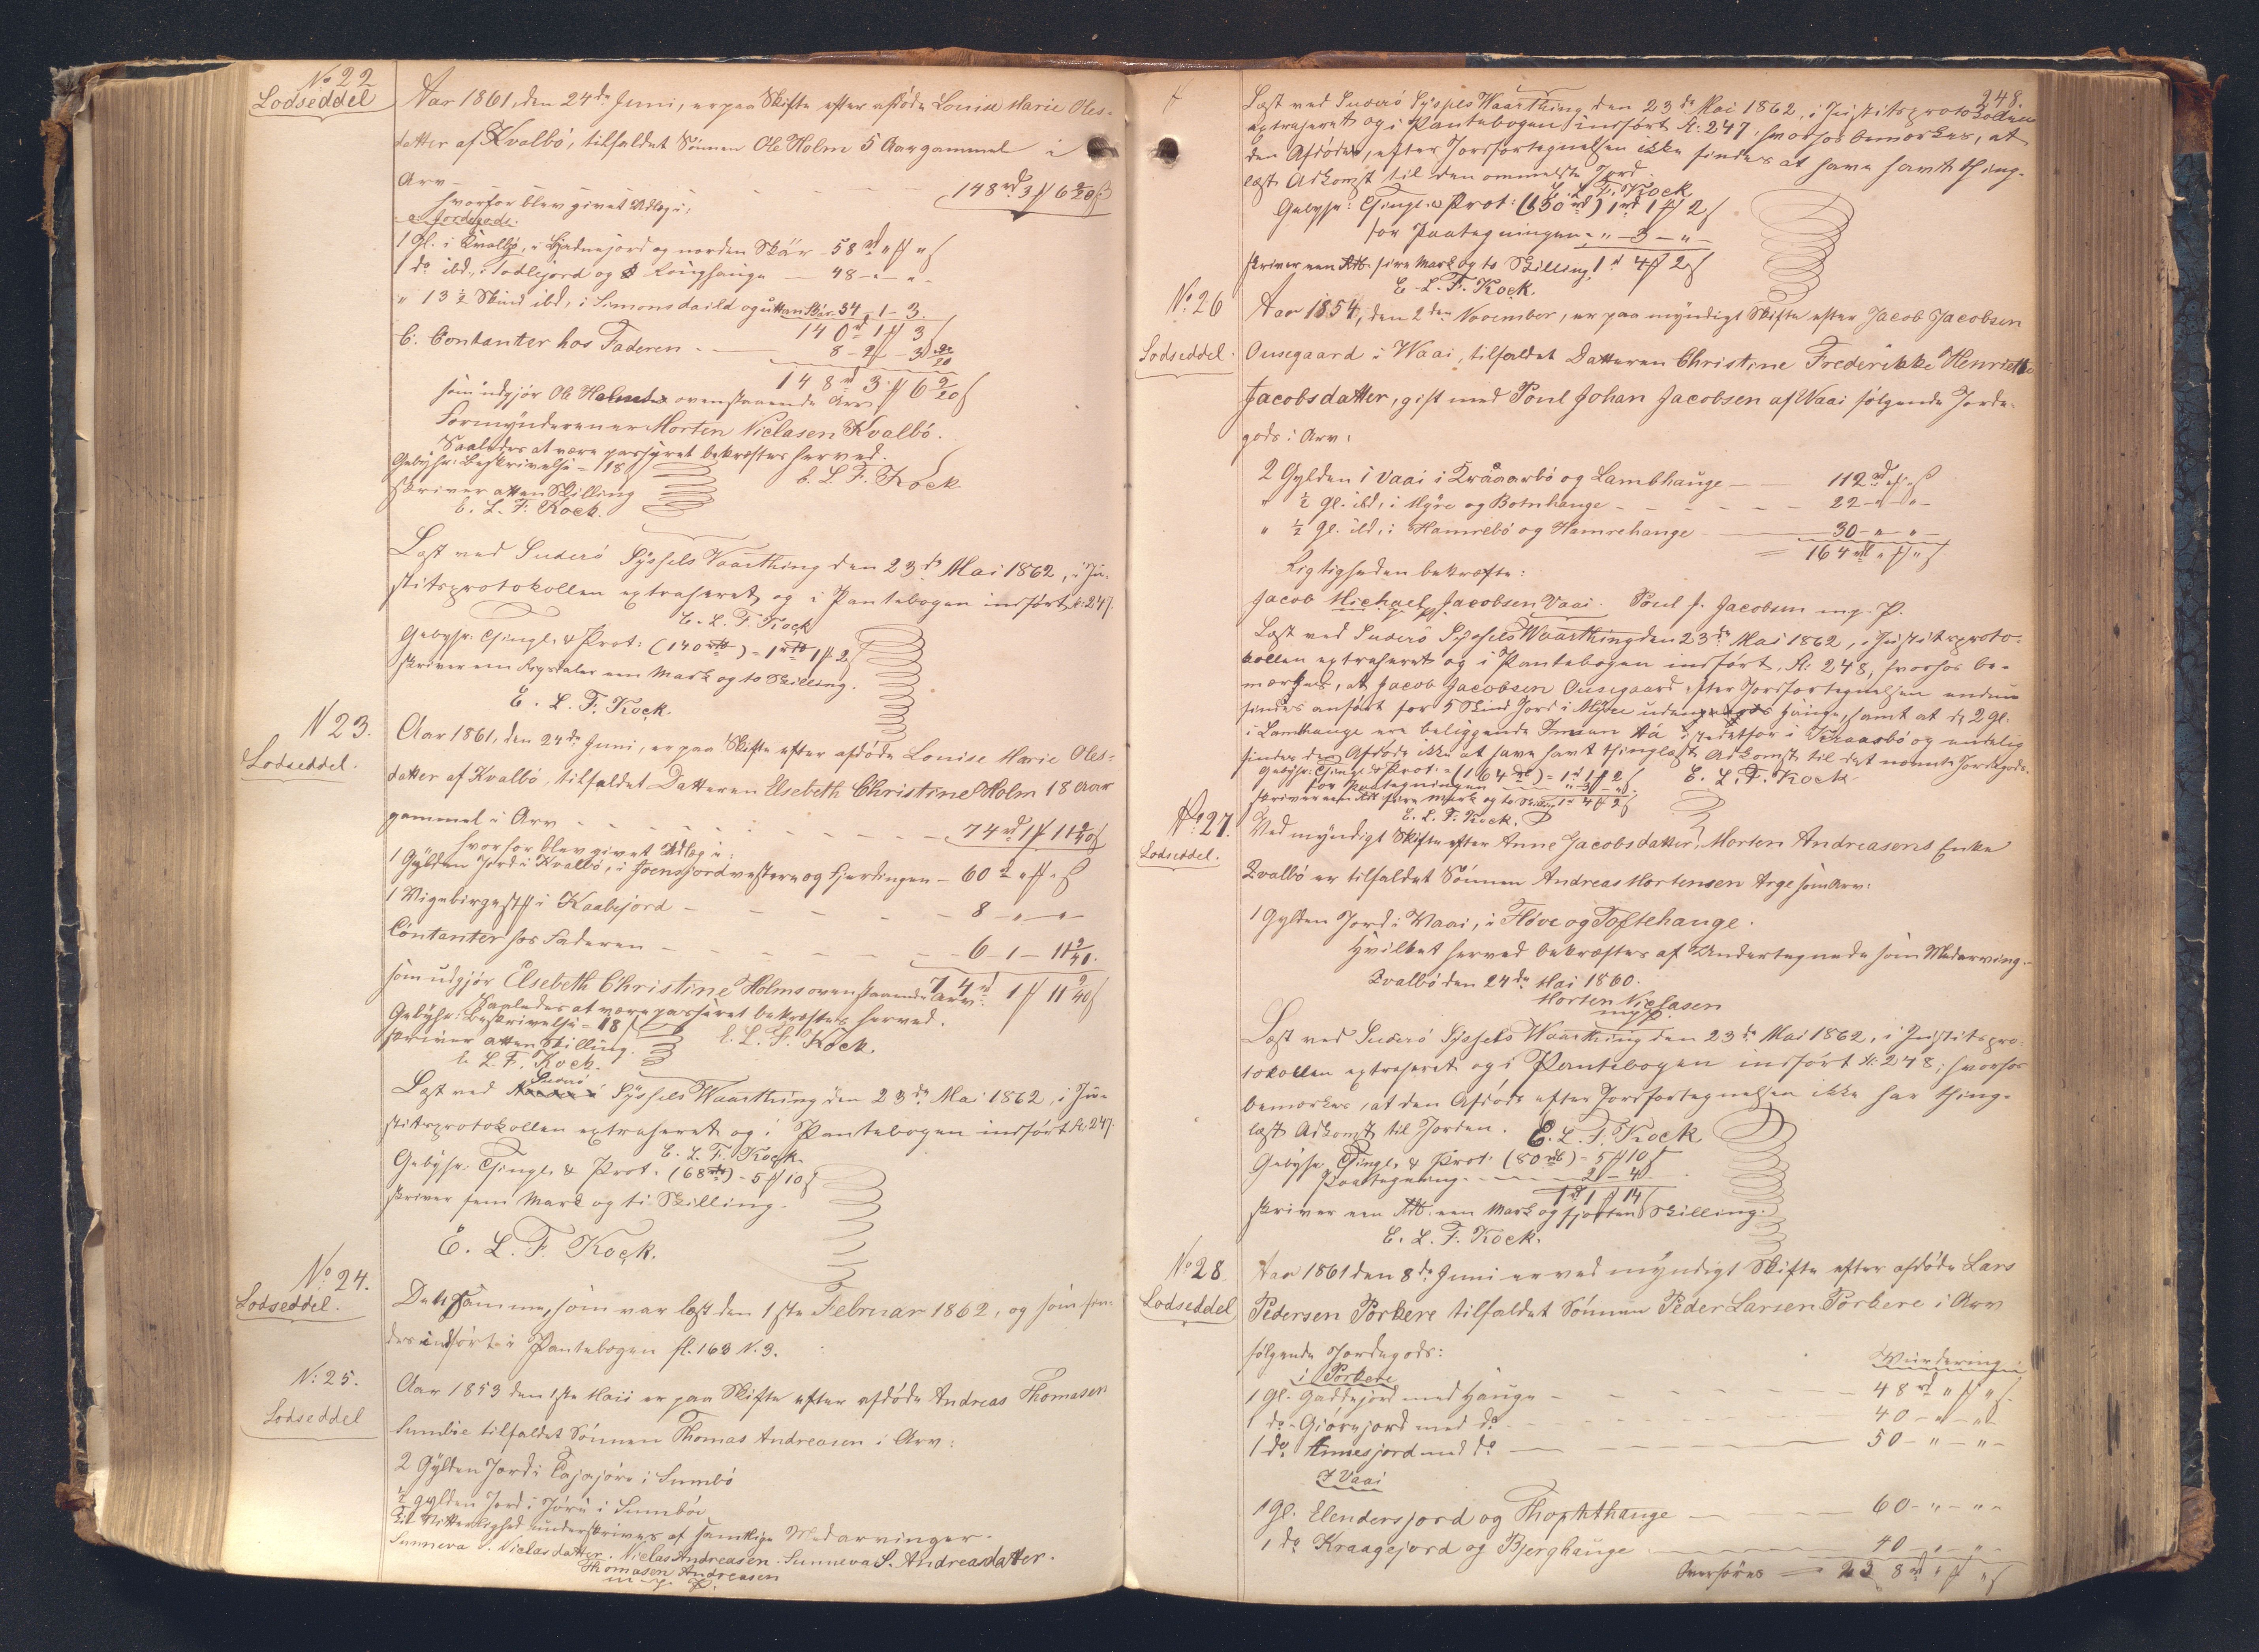 No 22
Lodseddel
Aar 1861, den 24de Juni, er paa Skifte efter afdøde Louise Marie Oles-
datter af Kvalbö, tilfaldet Sönnen Ole Holm 5 Aar gammel i
Arv 148 rd 3 ℔ 6 9/20 ß
hvorfor blev givet Udlæg i,
a. Jordegods.
1 Gl. i Kvalbø, i Hjednejord og norden Skår - 58 rd " ℔ " ß
1 do ibd., i Todlejord og Kringhauge - 48 - " - " -
" 13 1/2 Skind ibd, i Simonsdaild og uttan Skår 34 - 1 - 3.
140 rd 1 ℔ 3 ß
C. Contanter hos Faderen - 8 - 2 - 3 9/20
148 rd 3 ℔ 6 9/20 ß
som udgjör Ole Holms ovenstaaende Arv
Formynderen er Morten Niclasen Kvalbö.
Saaledes at være passeret bekræftes herved.
Gebyhr: Beskrivelse = 18 ß
E. L. F. Kock.
skriver atten Skilling
E. L. F. Kock.
Læst ved Suderö Syssels Vaarthing den 23de Mai 1862, i Ju-
stitsprotokollen extraheret og i Pantebogen indført fl. 247.
E. L. F. Kock
Gebyhr: Thingl. & Prot: (140 rd) = 1 rd 1 ℔ 2 ß
skriver een Rigsdaler een Mark og to Skilling.
E. L. F. Kock.
N 23.
Lodseddel.
Aar 1861, den 24de Juni, er paa Skifte efter afdøde Louise Marie Oles-
datter af Kvalbö, tilfaldet Datteren Elsebeth Christine Holm 18 Aar
gammel i Arv - 74 rd 1 ℔ 11 9/40 ß
hvorfor blev givet Udlæg i:
1 Gylden Jord i Kvalbö, i Joensjord vestere og Fjerdingen - 60 rd " ℔ " ß
1 Vignebirgestk i Kaabejord - 8 - " - " -
Contanter hos Faderen - 6 - 1 - 11 9/40.
74 rd 1 ℔ 11 9/40 ß
som udgjör Elsebeth Christine Holms ovenstaaende Arv.
Saaledes at være passeret bekræftes herved.
Gebyhr: Beskrivelse = 18 ß
E. L. F. Kock.
skriver atten Skilling.
E. L. F. Kock.
Suderö
Læst ved Syssels Waarthing den 23de Mai 1862, i Ju-
stitsprotokollen extraheret og i Pantebogen indført fl. 247.
E. L. F. Kock.
Gebyhr: Thingl. & Prot. (68 rd) - 5 ℔ 10 ß
skriver fem Mark og ti Skilling.
E. L. F. Kock.
No 24.
Lodseddel.
Det samme, som var læst den 1ste Februar 1862, og som fin-
des indført i Pantebogen fl. 163 N. 3.
N: 25.
Lodseddel
Aar 1853 den 1ste Maii er paa Skifte efter afdøde Andreas Thomasen
Sumböe tilfaldet Sönnen Thomas Andreasen i Arv:
2 Gylden Jord i i Sumbö
1/2 Gylden Jord i Jöru i Sumböe
Til Vitterlighed underskrives af samtlige Medarvinger.
Sunneva S. Niclasdatter. Niclas Andreasen. Sunneva S. Andreasdatter.
Thomasen Andreasen
m. p. P.
248.
Læst ved Suderö Syssels Waarthing den 23de Mai 1862, i Justitsprotokollen
extraheret og i Pantebogen indført fl: 247, hvorhos bemærkes, at
den Afdøde, efter Jordfortegnelsen ikke findes at have havt thing-
læst Adkomst til den ommeldte Jord.
E. L. F. Kock
Gebyhr: Thingl. & Prot: (150 rd) 1 rd 1 ℔ 2 ß
for Paategningen - " - 3 - " -
skriver een Rd. fire Mark og to Skilling, 1 rd 4 ℔ 2 ß
E. L. F. Kock.
No 26
Lodseddel.
Aar 1854, den 2den November, er paa myndigt Skifte efter Jacob Jacobsen
Ousegaard i Waai, tilfaldet Datteren Christine Frederikke Henriette
Jacobsdatter, gift med Poul Johan Jacobsen af Waai følgende Jorde-
gods i Arv:
2 Gylden i Vaai i Kråaarbö og Lambhauge - 112 rd " ℔ " ß
" 1/2 Gl. ibd, i Myre og Botnhauge - 22 - " - " -
" 1/2 Gl. ibd, i Hamrebö og Hamrehauge - 30 - " - " -
= 164 rd " ℔ " ß
Rigtigheden bekræfte:
Jacob Michael Jacobsen Vaai. Poul J. Jacobsen m. p. P.
Læst ved Suderö Syssels Waarthing den 23de Mai 1862, i Justitsproto-
kollen extraheret og i Pantebogen indført, fl: 248, hvorhos be-
mærkes, at Jacob Jacobsen Ousegaard efter Jordfortegnelsen endnu
findes anført for 5 Skind Jord i Myre uden Hauge, samt at de 2 Gl.
i Lambhauge ere beliggende Innan Aá istedetfor i Kraasbö og endelig
findes den Afdøde ikke at have havt thinglæst Adkomst til det nævnte Jordegods.
Gebyhr: Thingl. & Prot. = (164 rd) = 1 rd 1 ℔ 2 ß
E. L. F. Kock.
for Paategningen " - 3 - "
skriver een Rd. fire Mark og to Skilling 1 rd 4 ℔ 2 ß
E. L. F. Kock.
No 27.
Lodseddel.
Ved myndigt Skifte efter Anne Jacobsdatter, Morten Andreasens Enke
Qvalbö er tilfaldet Sönnen Andreas Mortensen Arge som Arv:
1 Gylden Jord i Waai, i Flöve og Toftehauge.
Hvilket herved bekræftes af Undertegnede som Medarving.
Qvalbö den 24de Mai 1860.
Morten Niclasen
m. p. P.
Læst ved Suderö Syssels Waarthing den 23de Mai 1862, i Justitspro-
tokollen extraheret og i Pantebogen indført fl: 248; hvorhos
bemærkes, at den Afdøde efter Jordfortegnelsen ikke har thing-
læst Adkomst til Jorden. E. L. F. Kock
Gebyhr Thingl. & Prot. (80 rd) = 5 ℔ 10 ß
Paategning - 2 - 4
1 rd 1 ℔ 14 ß
skriver een Rd. een Mark og fjorten Skilling.
E. L. F. Kock.
No 28
Lodseddel
Aar 1861 den 8de Juni er ved myndigt Skifte efter afdøde Lars
Pedersen Porkere tilfaldet Sönnen Peder Larsen Porkere i Arv
følgende Jordegods:
Wurdering
i Porkere
1 Gl. Gaddejord med Hauge - 48 rd " ℔ " ß.
1 do Giörejord med do - 40 - " - " -
1 do Annesjord med do - 50 - " - " -
I Vaai
1 Gl. Elendersjord og Thophthauge - 60 - " - " -
1 do Kraagejord og Bjerghauge - 40 - " - " -
Overføres = 238 rd " ℔ " ß